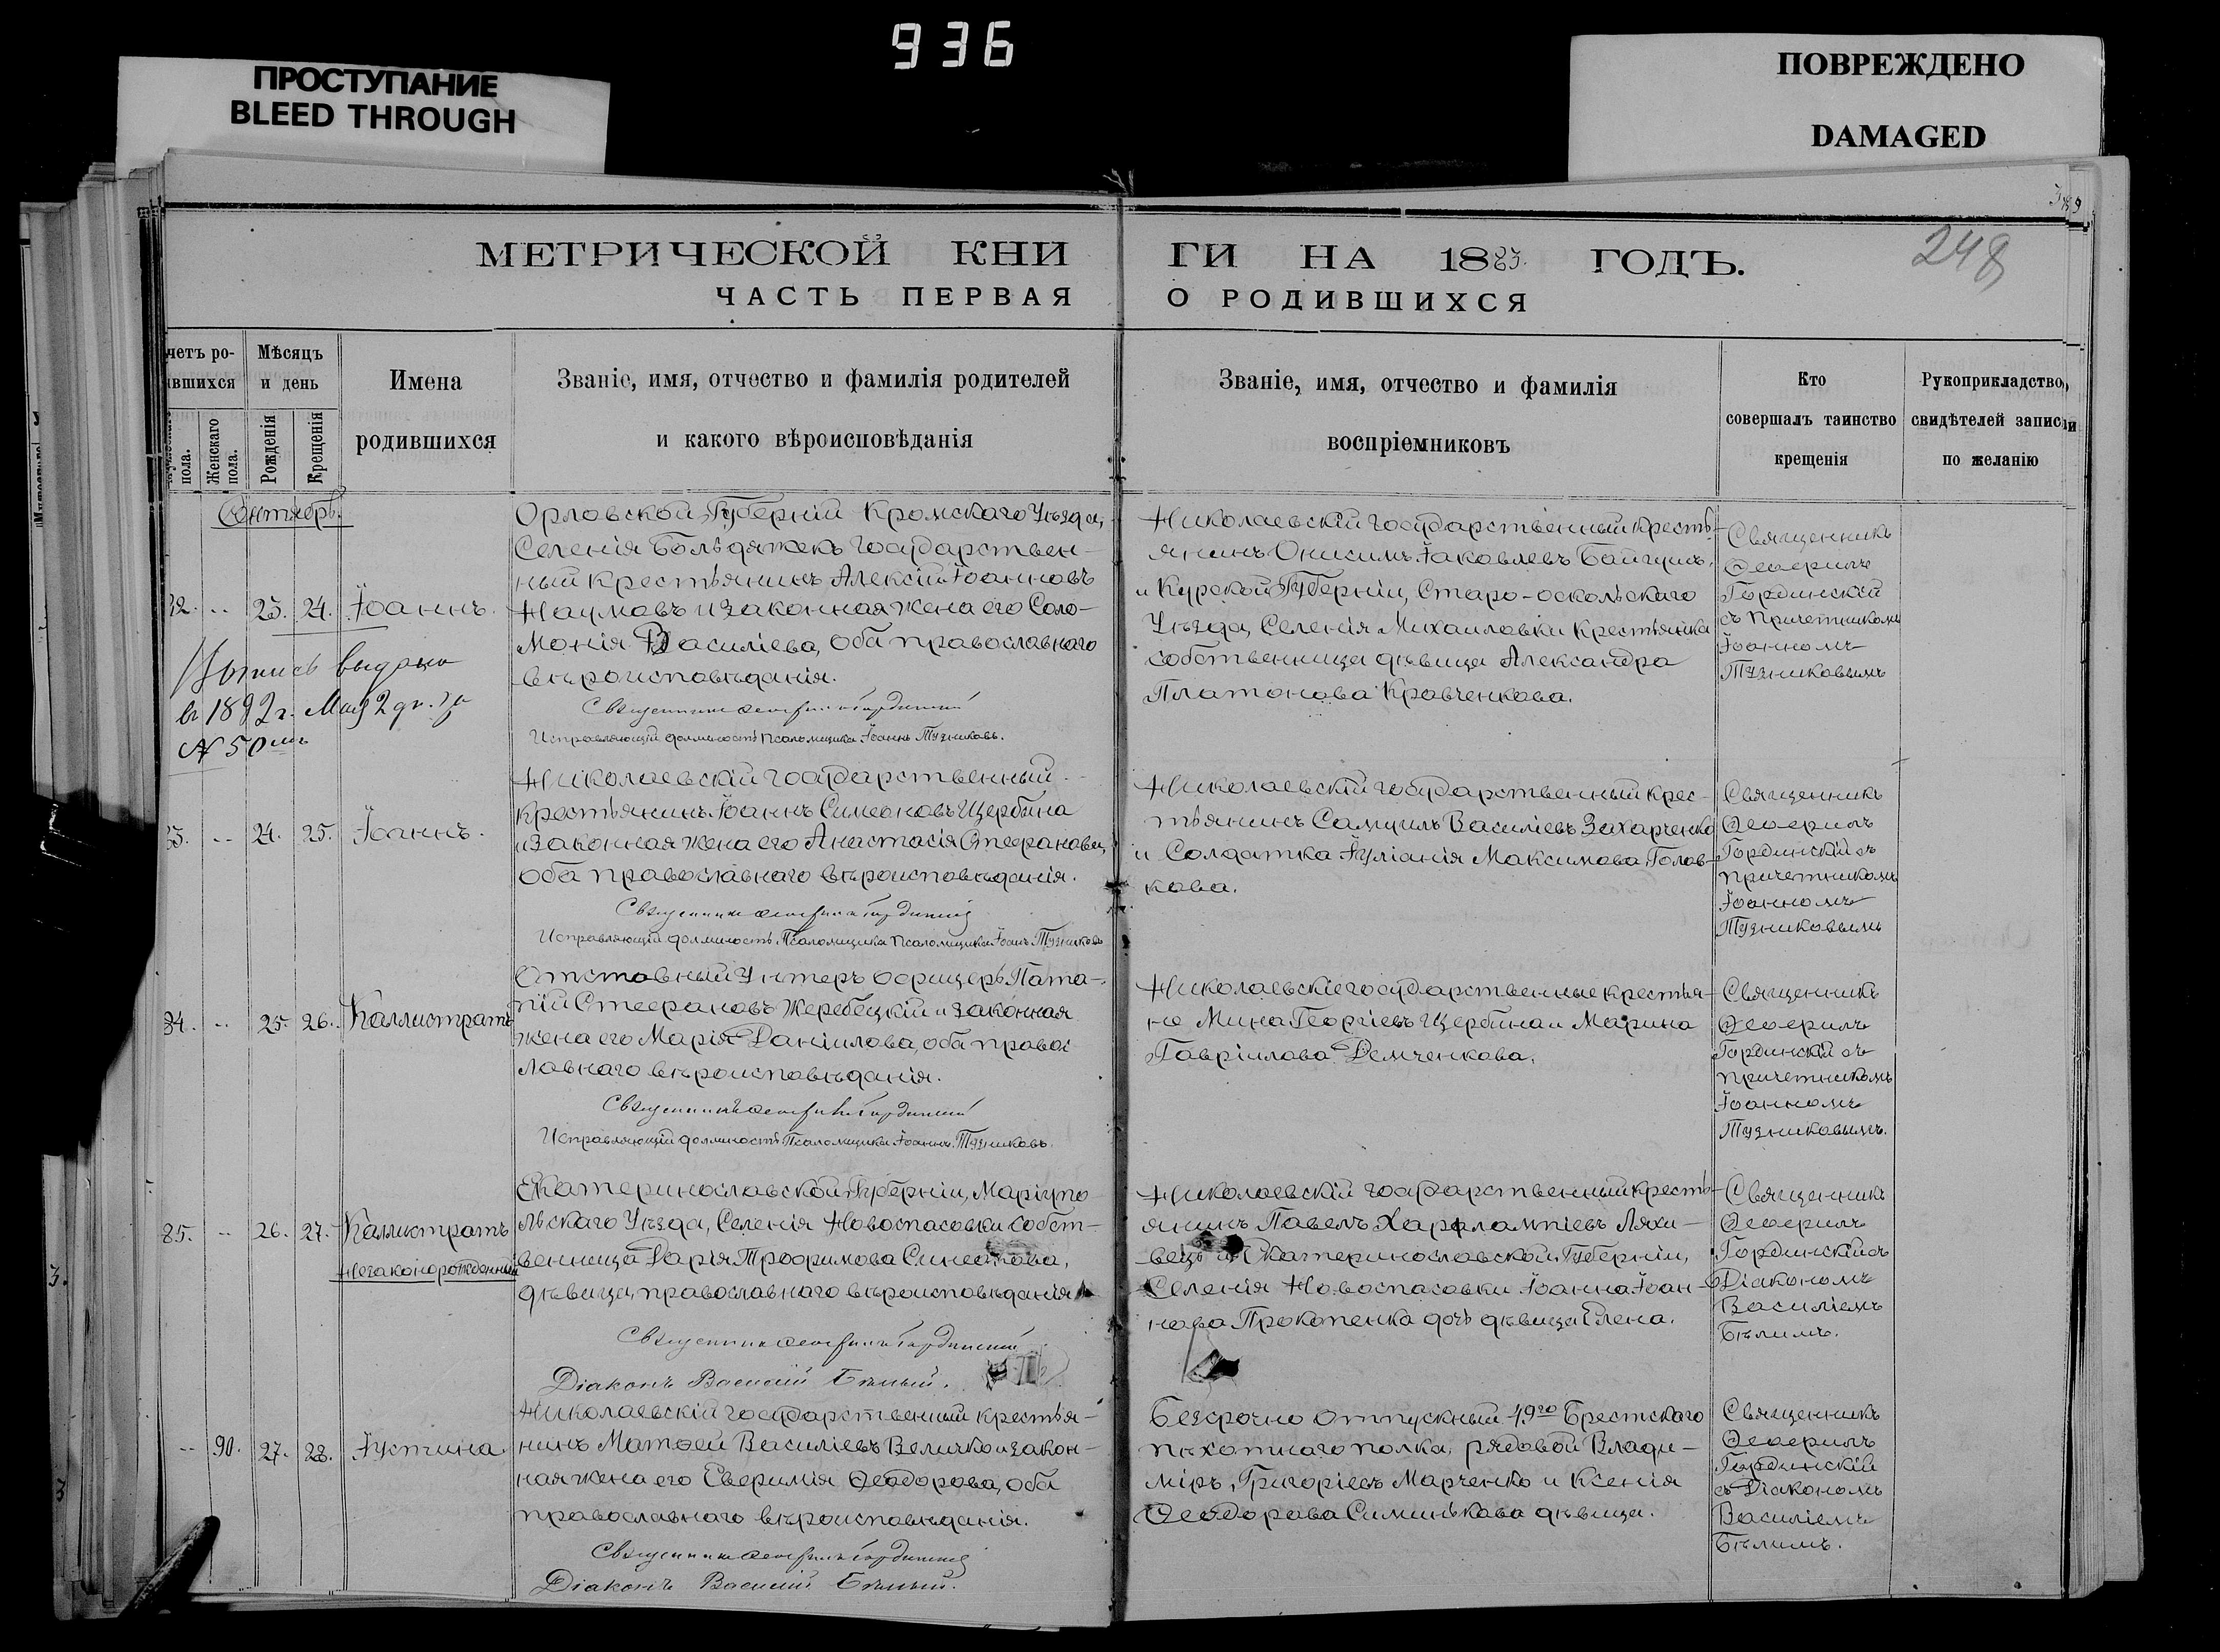 936
ПРОСТУПАНИЕ
BLEED THROUGH
ПОВРЕЖДЕНО
DAMAGED
248
МЕТРИЧЕСКОЙ КНИ
ГИ НА 1883 ГОДЪ.
ЧАСТЬ ПЕРВАЯ
О РОДИВШИХСЯ
четъ ро-
ившихся
пола.
Женскаго
пола.
Мѣсяцъ
и день
Рожденія
Крещенія
Имена
родившихся
Званіе, имя, отчество и фамилія родителей
и какого вѣроисповѣданія
Званіе, имя, отчество и фамилія
воспріемниковъ
Кто
совершалъ таинство
крещенія
Рукоприкладство
свидѣтелей записи
по желанію
Сентябрь.
82. -- 23. 24. Іоаннъ.
Выпись выдана
въ 1892 г. Мая 2 дн. за
№ 50мъ
Орловской Губерніи Кромскаго Уѣзда,
Селенія государствен-
ный крестьянинъ Алексій Іоанновъ
Наумовъ и законная жена его Соло-
монія Василіева, оба православнаго
вѣроисповѣданія.
Священникъ Ѳеофилъ Гординскій
Исправляющій должность Псаломщика Іоаннъ Тузниковъ.
Николаевскій государственный кресть-
янинъ Онисимъ Іаковлевъ
и Курской Губерніи, Старо-оскольскаго
Уѣзда, Селенія Михаиловки крестьянка
собственница дѣвица Александра
Платонова Кравченкова.
Священникъ
Ѳеофилъ
Гординскій
съ Причетникомъ
Іоанномъ
Тузниковымъ
83. -- 24. 25. Іоаннъ.
Николаевскій государственный
крестьянинъ Іоаннъ Симеоновъ Щербина
и законная жена его Анастасія Стефанова,
оба православнаго вѣроисповѣданія.
Священникъ Ѳеофилъ Гординскій
Исправляющій должность Псаломщика Псаломщика Іоаннъ Тузниковъ
Николаевскій государственный крес-
тьянинъ Самуилъ Василіевъ Захарченко
и Солдатка Іуліанія Максимова Голов-
кова.
Священникъ
Ѳеофилъ
Гординскій съ
причетникомъ
Іоанномъ
Тузниковымъ
84. -- 25. 26. Каллистратъ
Отставный Унтеръ офицеръ Пата-
пій Стефановъ Жеребецкій и законная
жена его Марія Даніилова, оба правос
лавнаго вѣроисповѣданія.
Священникъ Ѳеофилъ Гординскій
Исправляющій должность Псаломщика Іоаннъ Тузниковъ.
Николаевскіе государственные крестья-
не Мина Георгіевъ Щербина и Марина
Гавріилова Демченкова.
Священникъ
Ѳеофилъ
Гординскій съ
причетникомъ
Іоанномъ
Тузниковымъ.
85. -- 26. 27. Каллистратъ
незаконорожденный
Екатеринославской Губерніи, Маріупо
льскаго Уѣзда, Селенія Новоспасовки собст-
венница Дарія Трофимова
дѣвица, православнаго вѣроисповѣданія
Священникъ Ѳеофилъ Гординскій
Діаконъ Василій Бѣлый.
Николаевскій государственный кресть-
янинъ Павелъ Харлампіевъ Ляхи-
вецъ и Екатеринославской Губерніи,
Селенія Новоспасовки Іоанна Іоан-
нова Прокопенка дочь дѣвица Елена.
Священникъ
Ѳеофилъ
Гординскій съ
Діакономъ
Василіемъ
Бѣлимъ.
-- 90. 27. 28. Іустина.
Николаевскій государственный крестья-
нинъ Матѳей Василіевъ Величко и закон-
ная жена его Евфимія Ѳеодорова, оба
православнаго вѣроисповѣданія.
Священникъ Ѳеофилъ Гординскій
Діаконъ Василій Бѣлый.
Безсрочно отпускный 49го Брестскаго
пѣхотнаго полка, рядовой Влади-
міръ Григоріевъ Марченко и Ксенія
Ѳеодорова Симинькова дѣвица.
Священникъ
Ѳеофилъ
Гординскій
съ Діакономъ
Василіемъ
Бѣлимъ.